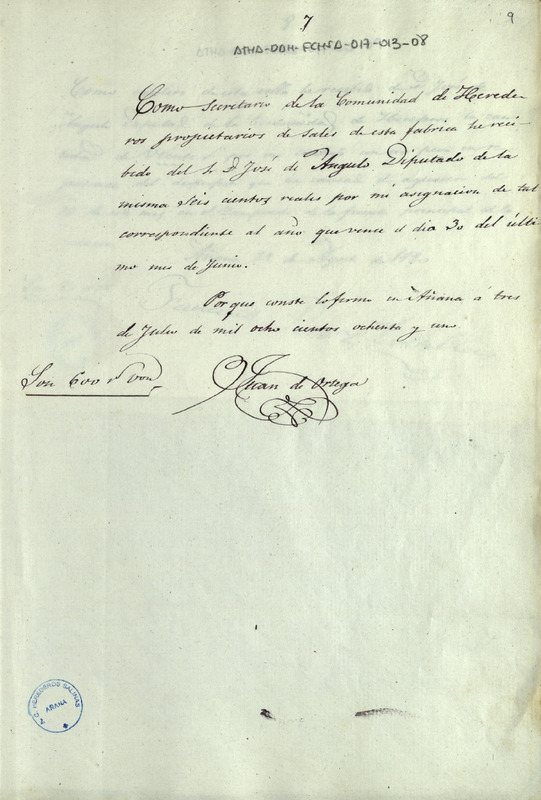 7
9
ATHA-DAH-FCHSA-017-013-08
Como Secretario de la Comunidad de Herede-
ros propietarios de Sales de esta fabrica he reci-
bido del S. D. José de Angulo Diputado de la
misma Seis cientos reales por mi asignacion de tal
correspondiente al año que vence el dia 30 del últi-
mo mes de Junio.
Porque conste lo firmo en Añana á tres
de Julio de mil ocho cientos ochenta y uno
Son 600 rs von
Juan de Ortega
C. HEREDEROS SALINAS
AÑANA